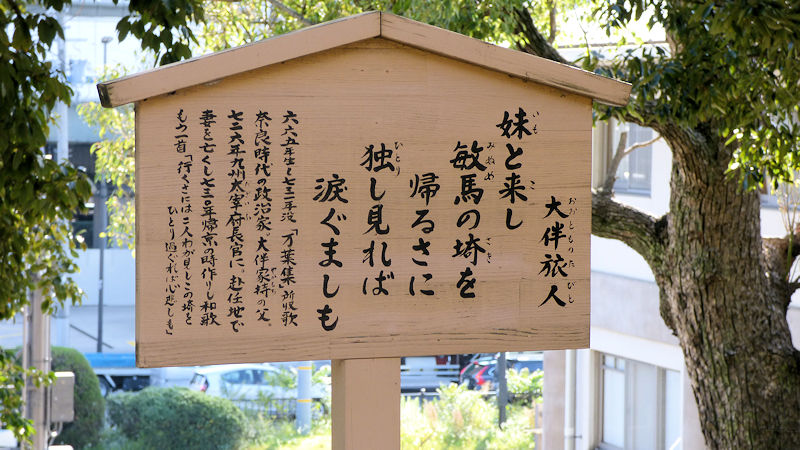 大伴旅人
妹と来し
敏馬の埼を
帰るさに
独し見れば
涙ぐましも
六六五年生し七三一年没 「万葉集」所収歌
奈良時代の政治家、大伴家持の父。
七二八年九州太宰府長官に。赴任地で
妻を亡くし七三〇年帰京の時作りし和歌
もう一首「行くさには二人わが見しこの埼を
ひとり過ぐれば心悲しも」